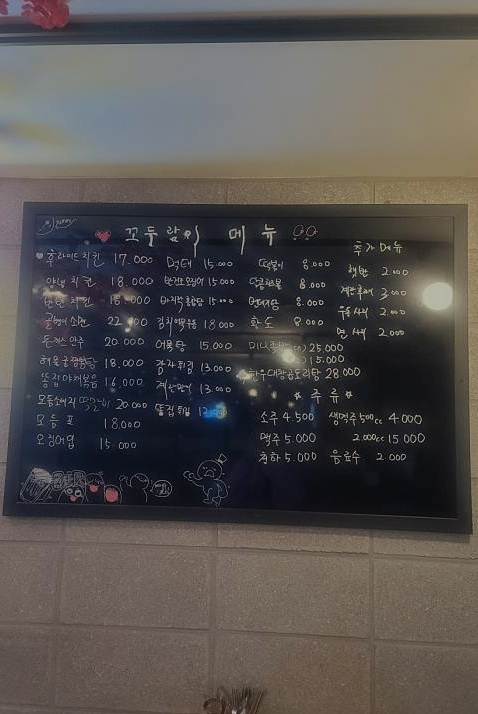 꼬두람이 메뉴
후라이드치킨 17.000
양념치킨 18.000
반반치킨 18.000
골뱅이소면 22.000
돈까스안주 20.000
해물 18.000
똥집야채볶음 16.000
모듬소세지 20.000
모듬포 18000
오징어입 15.000
먹태 15.000
반건조오징어 15.000
바지락 15.000
김치제육볶음 18.000
어묵탕 15.000
감자튀김 13.000
계란말이 13.000
똥집튀김
떡볶이 8.000
8.000
번데기탕 8.000
황도 8.000
25.000
15.000
한우대창곱도리탕 28.000
추가메뉴
햇반 2.000
계란후라이 3.000
2.000
면사리 2.000
☆ 주류 ☆
소주 4.500 생맥주 500cc 4000
맥주 5.000 2.000cc 15000
청하 5.000 음료수 2.000